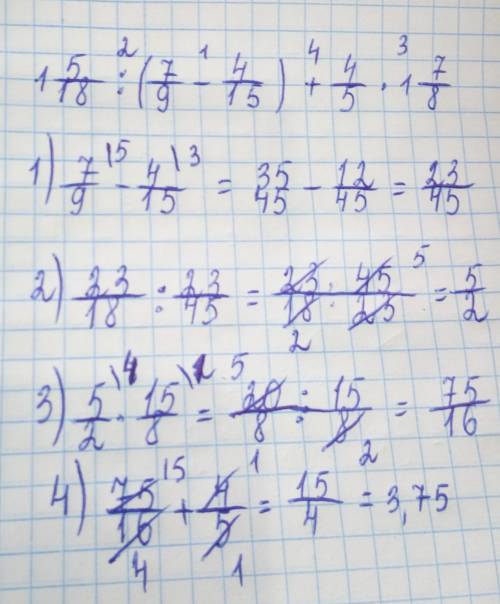 1 5/18 :² (7/9 -¹ 4/15) +⁴ 4/5 ·³ 1 7/8
1) 7/9 \5 - 4/15 \3 = 35/45 - 12/45 = 23/45
2) 23/18 : 23/45 = 23/18 : 45/23 5 2 = 5/2
3) 5/2 \4 · 15/8 \1 = 20/8 5 : 15/8 2 = 75/16
4) 75/16 15 4 + 4/5 1 1 = 15/4 = 3,75